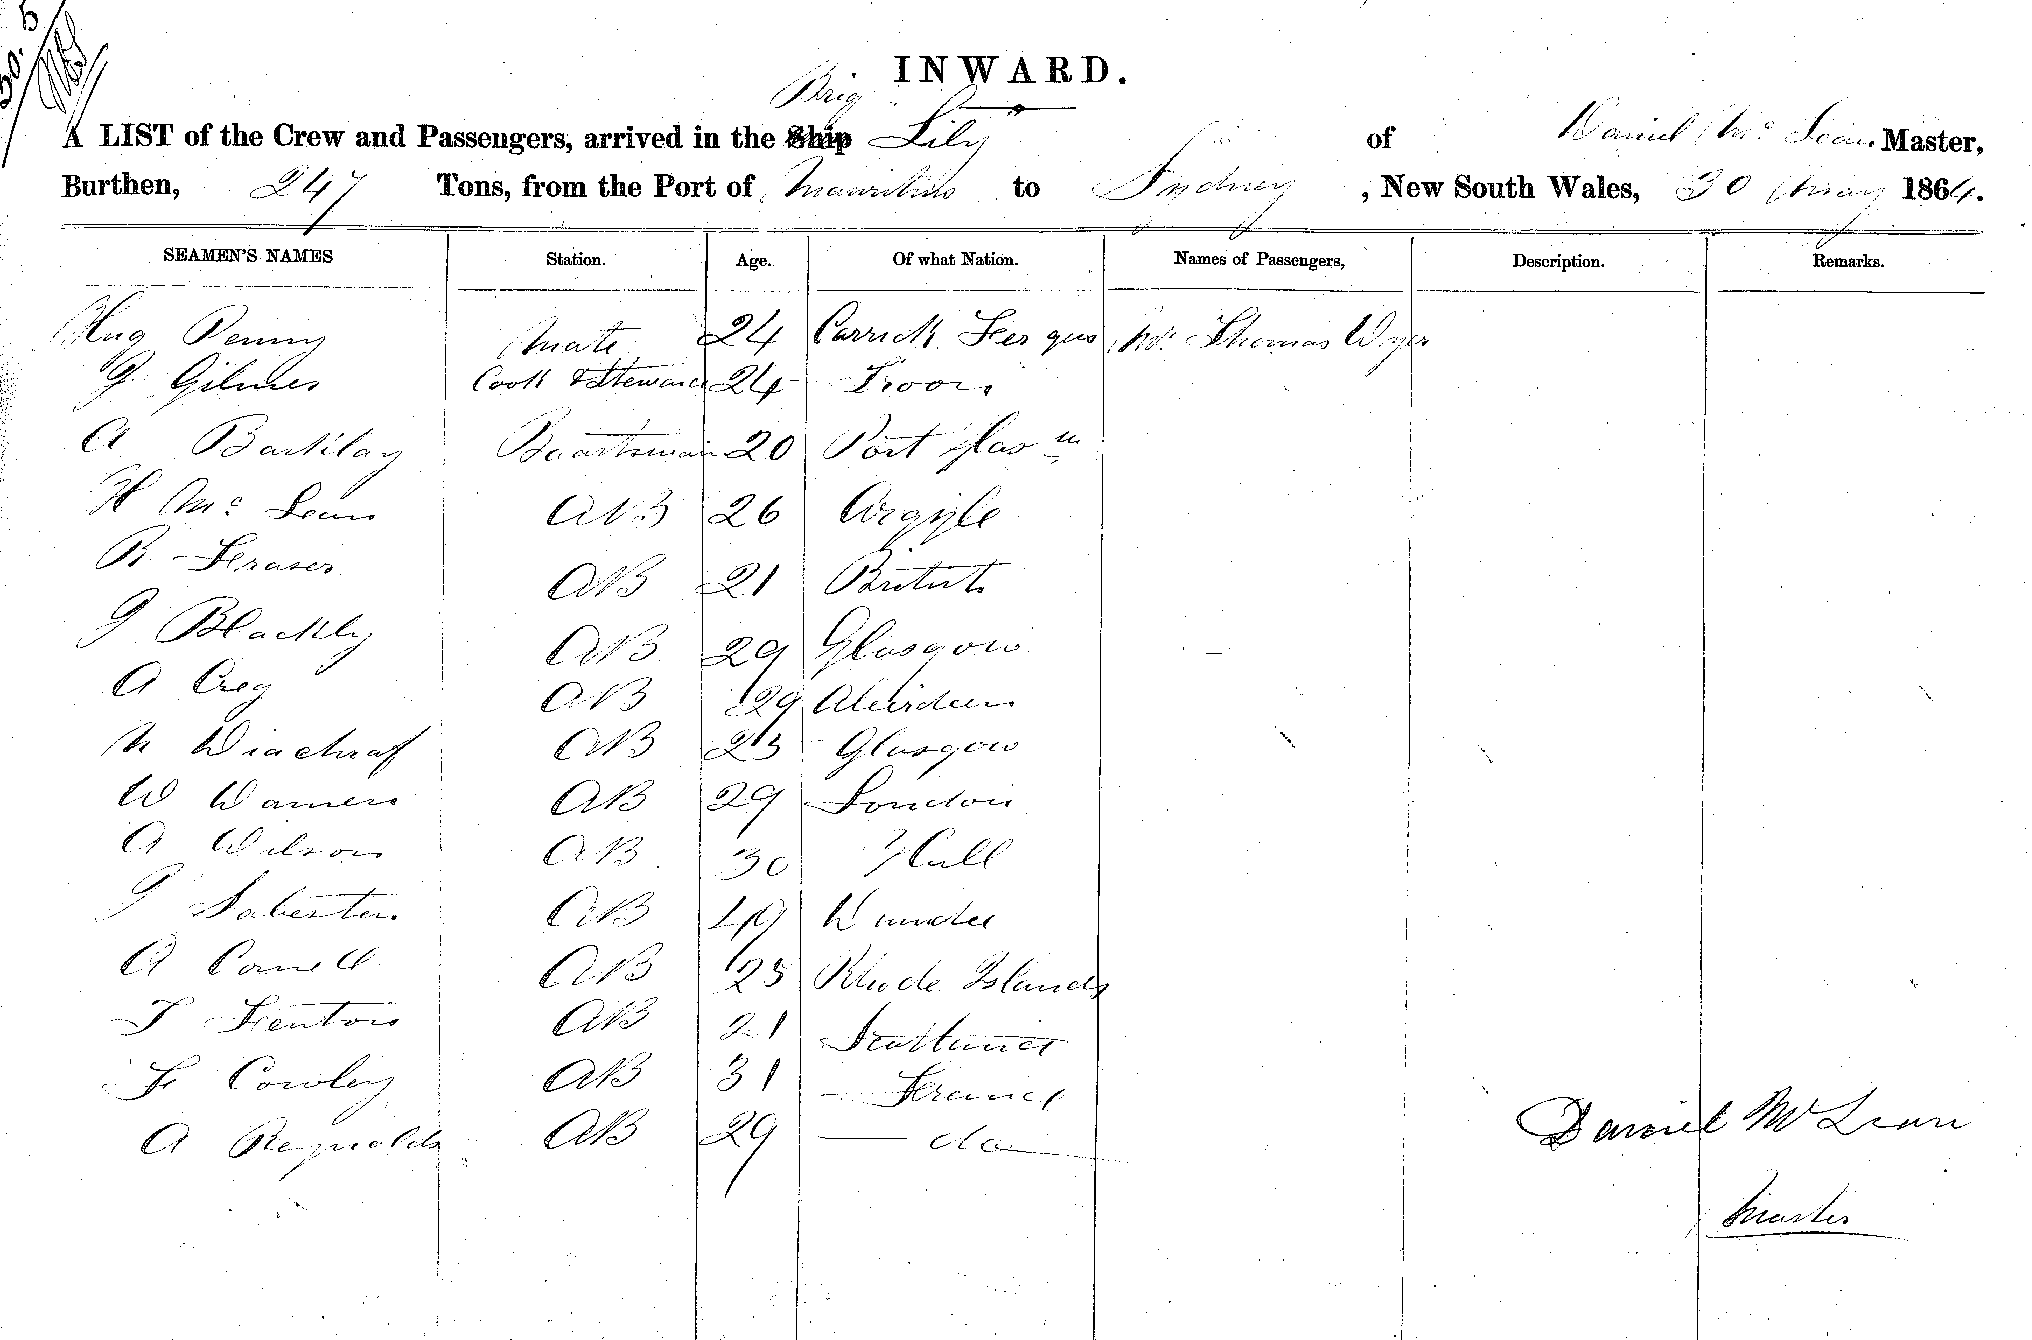 30. 5
INWARD.
Brig
A LIST of the Crew and Passengers, arrived in the Ship "Lily" of Daniel Mc Lean Master,
Burthen, 247 Tons, from the Port of Mauritius to Sydney, New South Wales, 30 May 1864.
SEAMEN'S NAMES Station. Age. Of what Nation. Names of Passengers, Description. Remarks.
Hug Penny Mate 24 Carrick Fergus Mr. Thomas Wyer
G. Gilmes Cook & Steward 24 Troon
A Barklay Boartsman 20 Port Glas
H Mc Lean AB 26 Argyle
R Fraser AB 21
J Blackly AB 29 Glasgow
A Creg AB 29 Aberdeen
AB 23 Glasgow
W Warners AB 29 London
A Wilson AB 30 Hull
AB 49 Dundee
A Cornell AB 25 Rhode Islands
T Fenton AB 21
F Cowley AB 31 France
A Reynolds AB 29 do
Daniel Mc Lean
Master